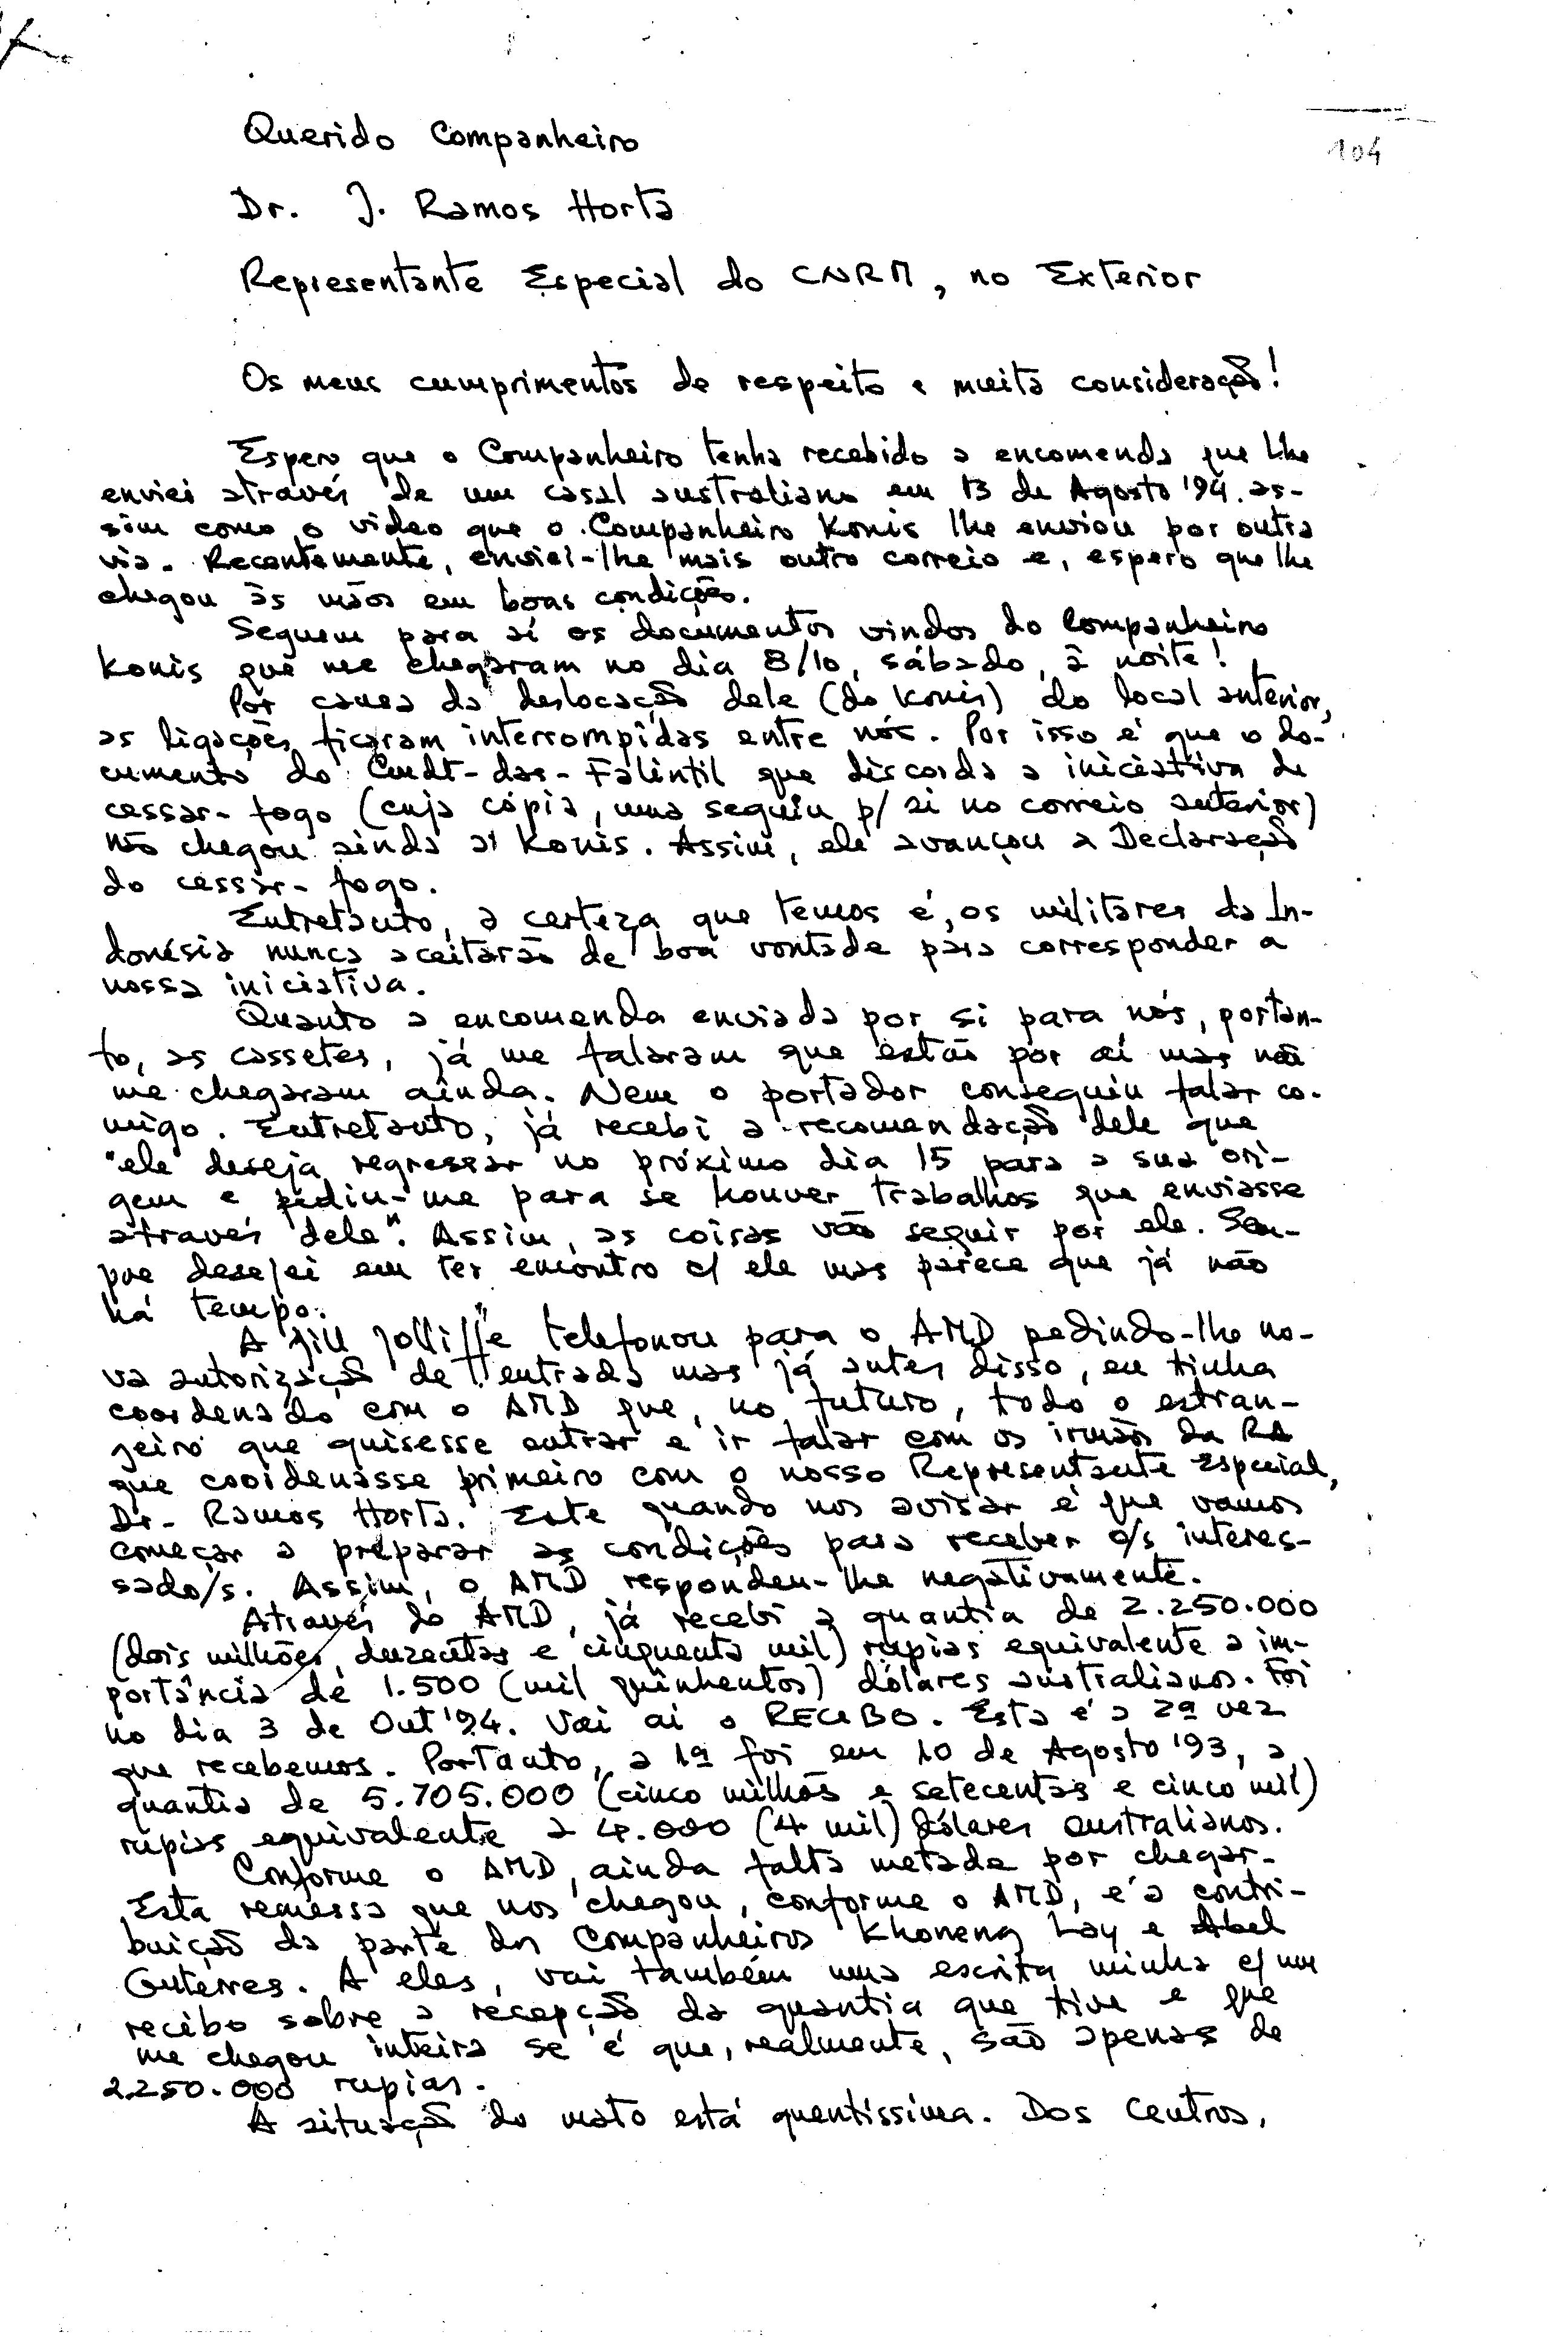 104
Querido Companheiro
Dr. J. Ramos Horta
Representante Especial do CNRM, no Exterior
Os meus cumprimentos de respeito e muita consideração!
Espero que o Companheiro tenha recebido a encomenda que lhe
enviei através de um casal australiano em 13 de Agosto '94. as-
sim como o video que o Companheiro Konis lhe enviou por outra
via. Recentemente, enviei-lhe mais outro correio e, espero que lhe
chegou às mãos em boas condições.
Seguem para aí os documentos vindos do Companheiro
Konis que me chegaram no dia 8/10, sábado, à noite!
Por causa da deslocação dele (do Konis) do local anterior,
as ligações ficaram interrompidas entre nós. Por isso é que o do-
cumento do Cmdt-das-Falintil que discorda a iniciativa de
cessar-fogo (cuja cópia, uma seguiu p/ si no correio anterior)
não chegou ainda a Konis. Assim, ele avançou a Declaração
do cessar-fogo.
Entretanto, a certeza que temos é, os militares da In-
donésia nunca aceitarão de boa vontade para corresponder a
nossa iniciativa.
Quanto a encomenda enviada por si para nós, portan-
to, as cassetes, já me falaram que estão por aí mas não
me chegaram ainda. Nem o portador conseguiu falar co-
migo. Entretanto, já recebi a recomendação dele que
"ele deseja regressar no próximo dia 15 para a sua ori-
gem e pediu-me para se houver trabalhos que enviasse
através dele". Assim, as coisas vão seguir por ele. Sem-
pre desejei em ter encontro c/ ele mas parece que já não
há tempo.
A Jill Jolliffe telefonou para o AMD pedindo-lhe no-
va autorização de entrada mas já antes disso, eu tinha
coordenado com o AMD que, no futuro, todo o estran-
jeiro que quisesse entrar e ir falar com os irmãos da RA
que cooidenasse primeiro com o nosso Representante Especial,
Dr. Ramos Horta. Este quando nos avisar é que vamos
começar a preparar as condições para receber o/s interes-
sado/s. Assim, o AMD respondeu-lhe negativamente.
Através do AMD, já recebi a quantia de 2.250.000
(dois milhões, duzentas e cinquenta mil) rupias equivalente a im-
portância de 1.500 (mil quinhentos) dólares australianos. Foi
no dia 3 de Out '94. Vai aí o RECIBO. Esta é a 2ª vez
que recebemos. Portanto, a 1ª foi em 10 de Agosto '93, a
quantia de 5.705.000 (cinco milhõs e setecentas e cinco mil)
rupias equivalente a 4.000 (4 mil) dólares australianos.
Conforme o AMD, ainda falta metade por chegar.
Esta remessa que nos chegou, conforme o AMD, é a contri-
buição da parte dos Companheiros Khoneng Lay e Abel
Guterres. A eles, vai também uma escrita minha c/ um
recibo sobre a recepção da quantia que tive e que
me chegou inteira se é que, realmente, são apenas de
2.250.000 rupias.
A situação do mato está quentíssima. Dos centros,